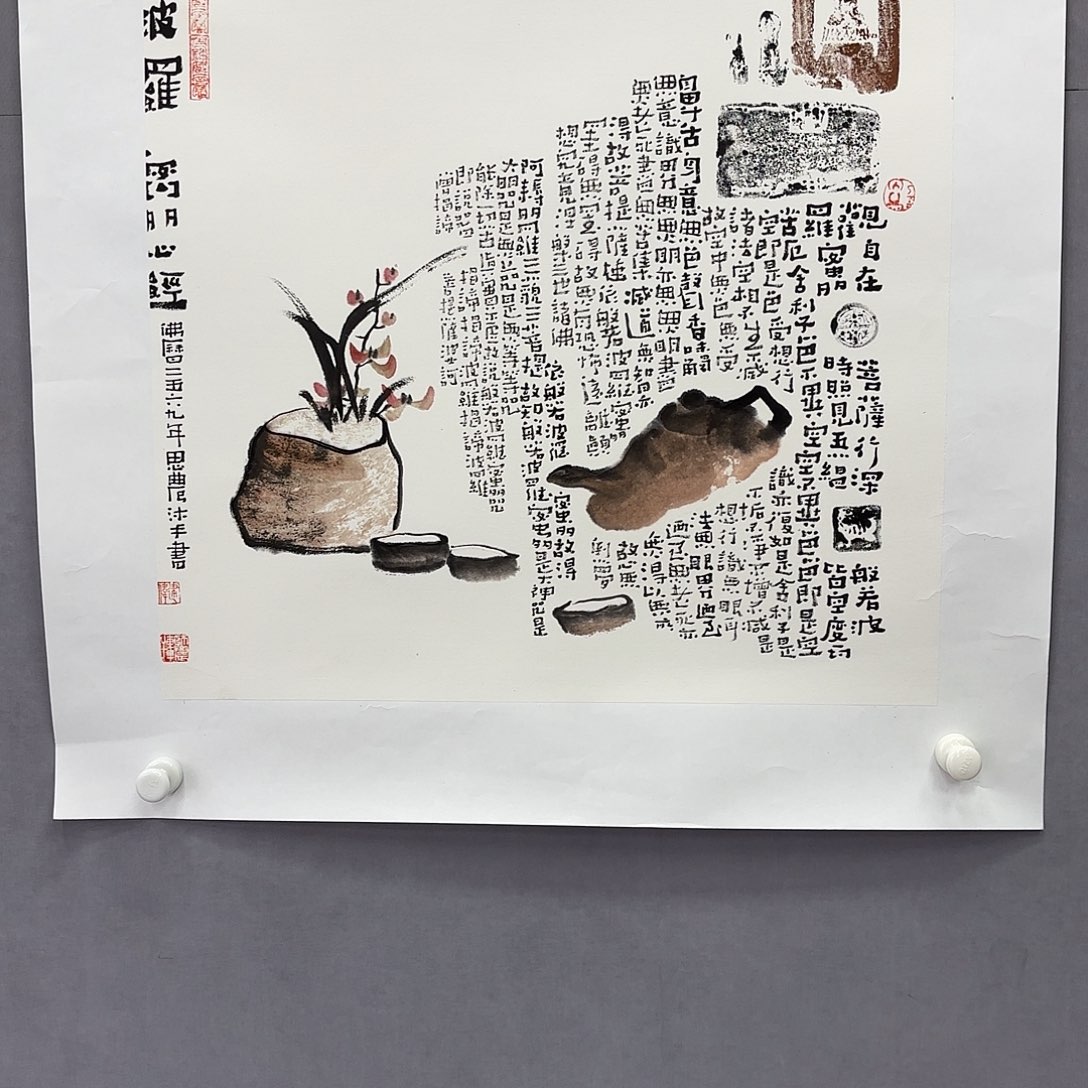 觀自在菩薩行深般若波
羅蜜多時照見五蘊皆空度一切
苦厄舍利子色不異空空不異色色即是空
空即是色受想行識亦復如是舍利子是
諸法空相不生不滅不垢不淨不增不減是
故空中無色無受想行識無眼耳
鼻舌身意無色聲香味觸法無眼界乃至
無意識界無無明亦無無明盡乃至無老死亦
無老死盡無苦集滅道無智亦無得以無所
得故菩提薩埵依般若波羅蜜多故心無
罣礙無罣礙故無有恐怖遠離顛倒夢
想究竟涅槃三世諸佛依般若波羅蜜多故得
阿耨多羅三藐三菩提故知般若波羅蜜多是大神咒是
大明咒是無上咒是無等等咒
能除一切苦真實不虛故說般若波羅蜜多咒
即說咒曰揭諦揭諦波羅揭諦波羅
僧揭諦菩提薩婆訶
波羅蜜多心經
佛曆二五六九年思農沐手書